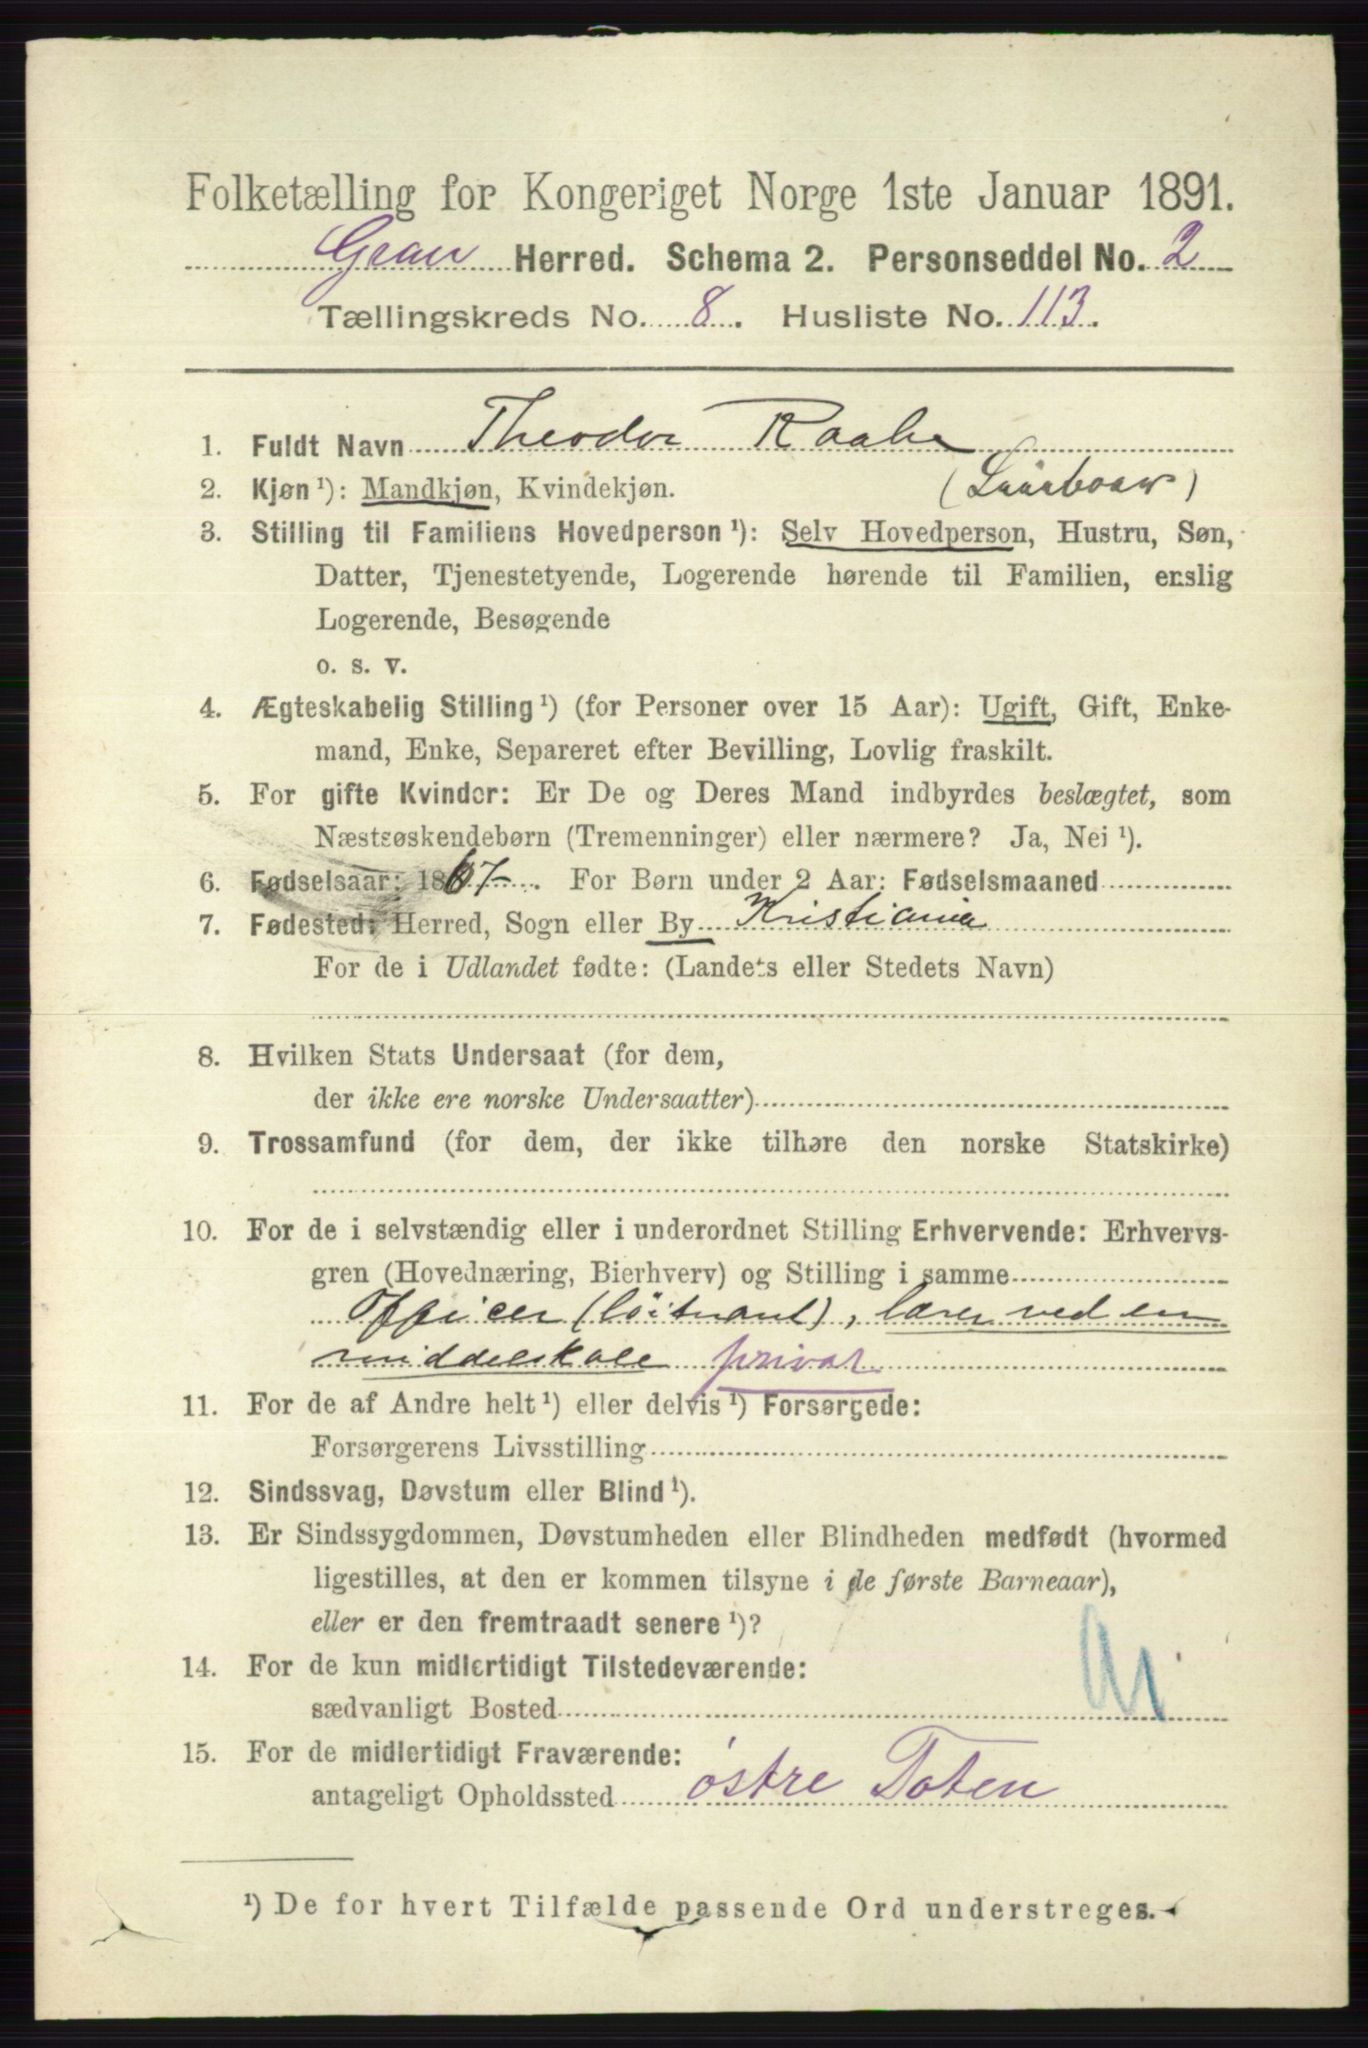 Folketælling for Kongeriget Norge 1ste Januar 1891.
Gran Herred. Schema 2. Personseddel No. 2
Tællingskreds No. 8. Husliste No. 113.
1. Fuldt Navn Theodor Raabe
2. Kjøn ¹): Mandkjøn, Kvindekjøn.
3. Stilling til Familiens Hovedperson ¹): Selv Hovedperson, Hustru, Søn,
Datter, Tjenestetyende, Logerende hørende til Familien, enslig
Logerende, Besøgende
o. s. v.
4. Ægteskabelig Stilling ¹) (for Personer over 15 Aar): Ugift, Gift, Enke-
mand, Enke, Separeret efter Bevilling, Lovlig fraskilt.
5. For gifte Kvinder: Er De og Deres Mand indbyrdes beslægtet, som
Næstsøskendebørn (Tremenninger) eller nærmere? Ja, Nei ¹).
6. Fødselsaar: 1867. For Børn under 2 Aar: Fødselsmaaned
7. Fødested: Herred, Sogn eller By Kristiania
For de i Udlandet fødte: (Landets eller Stedets Navn)
8. Hvilken Stats Undersaat (for dem,
der ikke ere norske Undersaatter)
9. Trossamfund (for dem, der ikke tilhøre den norske Statskirke)
10. For de i selvstændig eller i underordnet Stilling Erhvervende: Erhvervs-
gren (Hovednæring, Bierhverv) og Stilling i samme
Officer (løitnant), lærer ved en
middelskole privat
11. For de af Andre helt ¹) eller delvis ¹) Forsørgede:
Forsørgerens Livsstilling
12. Sindssvag, Døvstum eller Blind ¹).
13. Er Sindssygdommen, Døvstumheden eller Blindheden medfødt (hvormed
ligestilles, at den er kommen tilsyne i de første Barneaar),
eller er den fremtraadt senere ¹)?
14. For de kun midlertidigt Tilstedeværende:
sædvanligt Bosted
15. For de midlertidigt Fraværende:
antageligt Opholdssted østre Toten
¹) De for hvert Tilfælde passende Ord understreges.